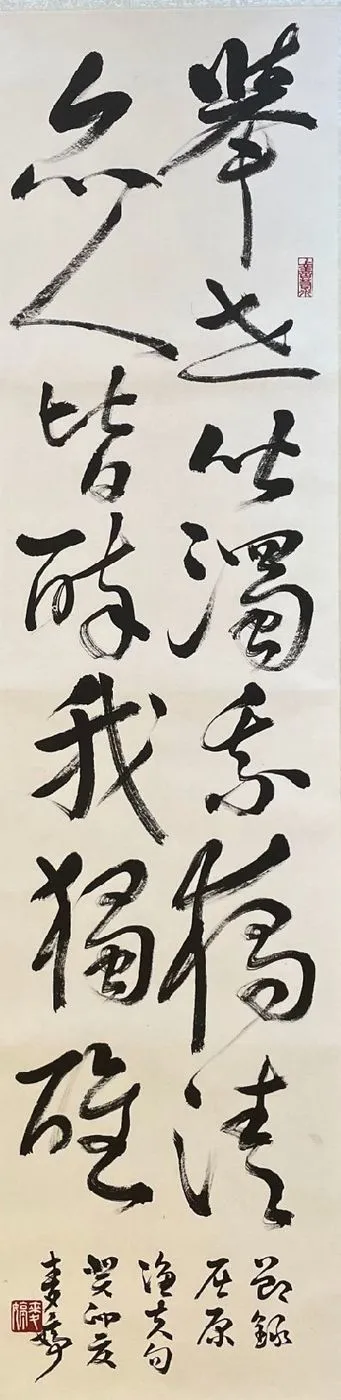 舉世皆濁我獨清
眾人皆醉我獨醒
節錄
屈原
漁父句
癸卯夏
麦婷